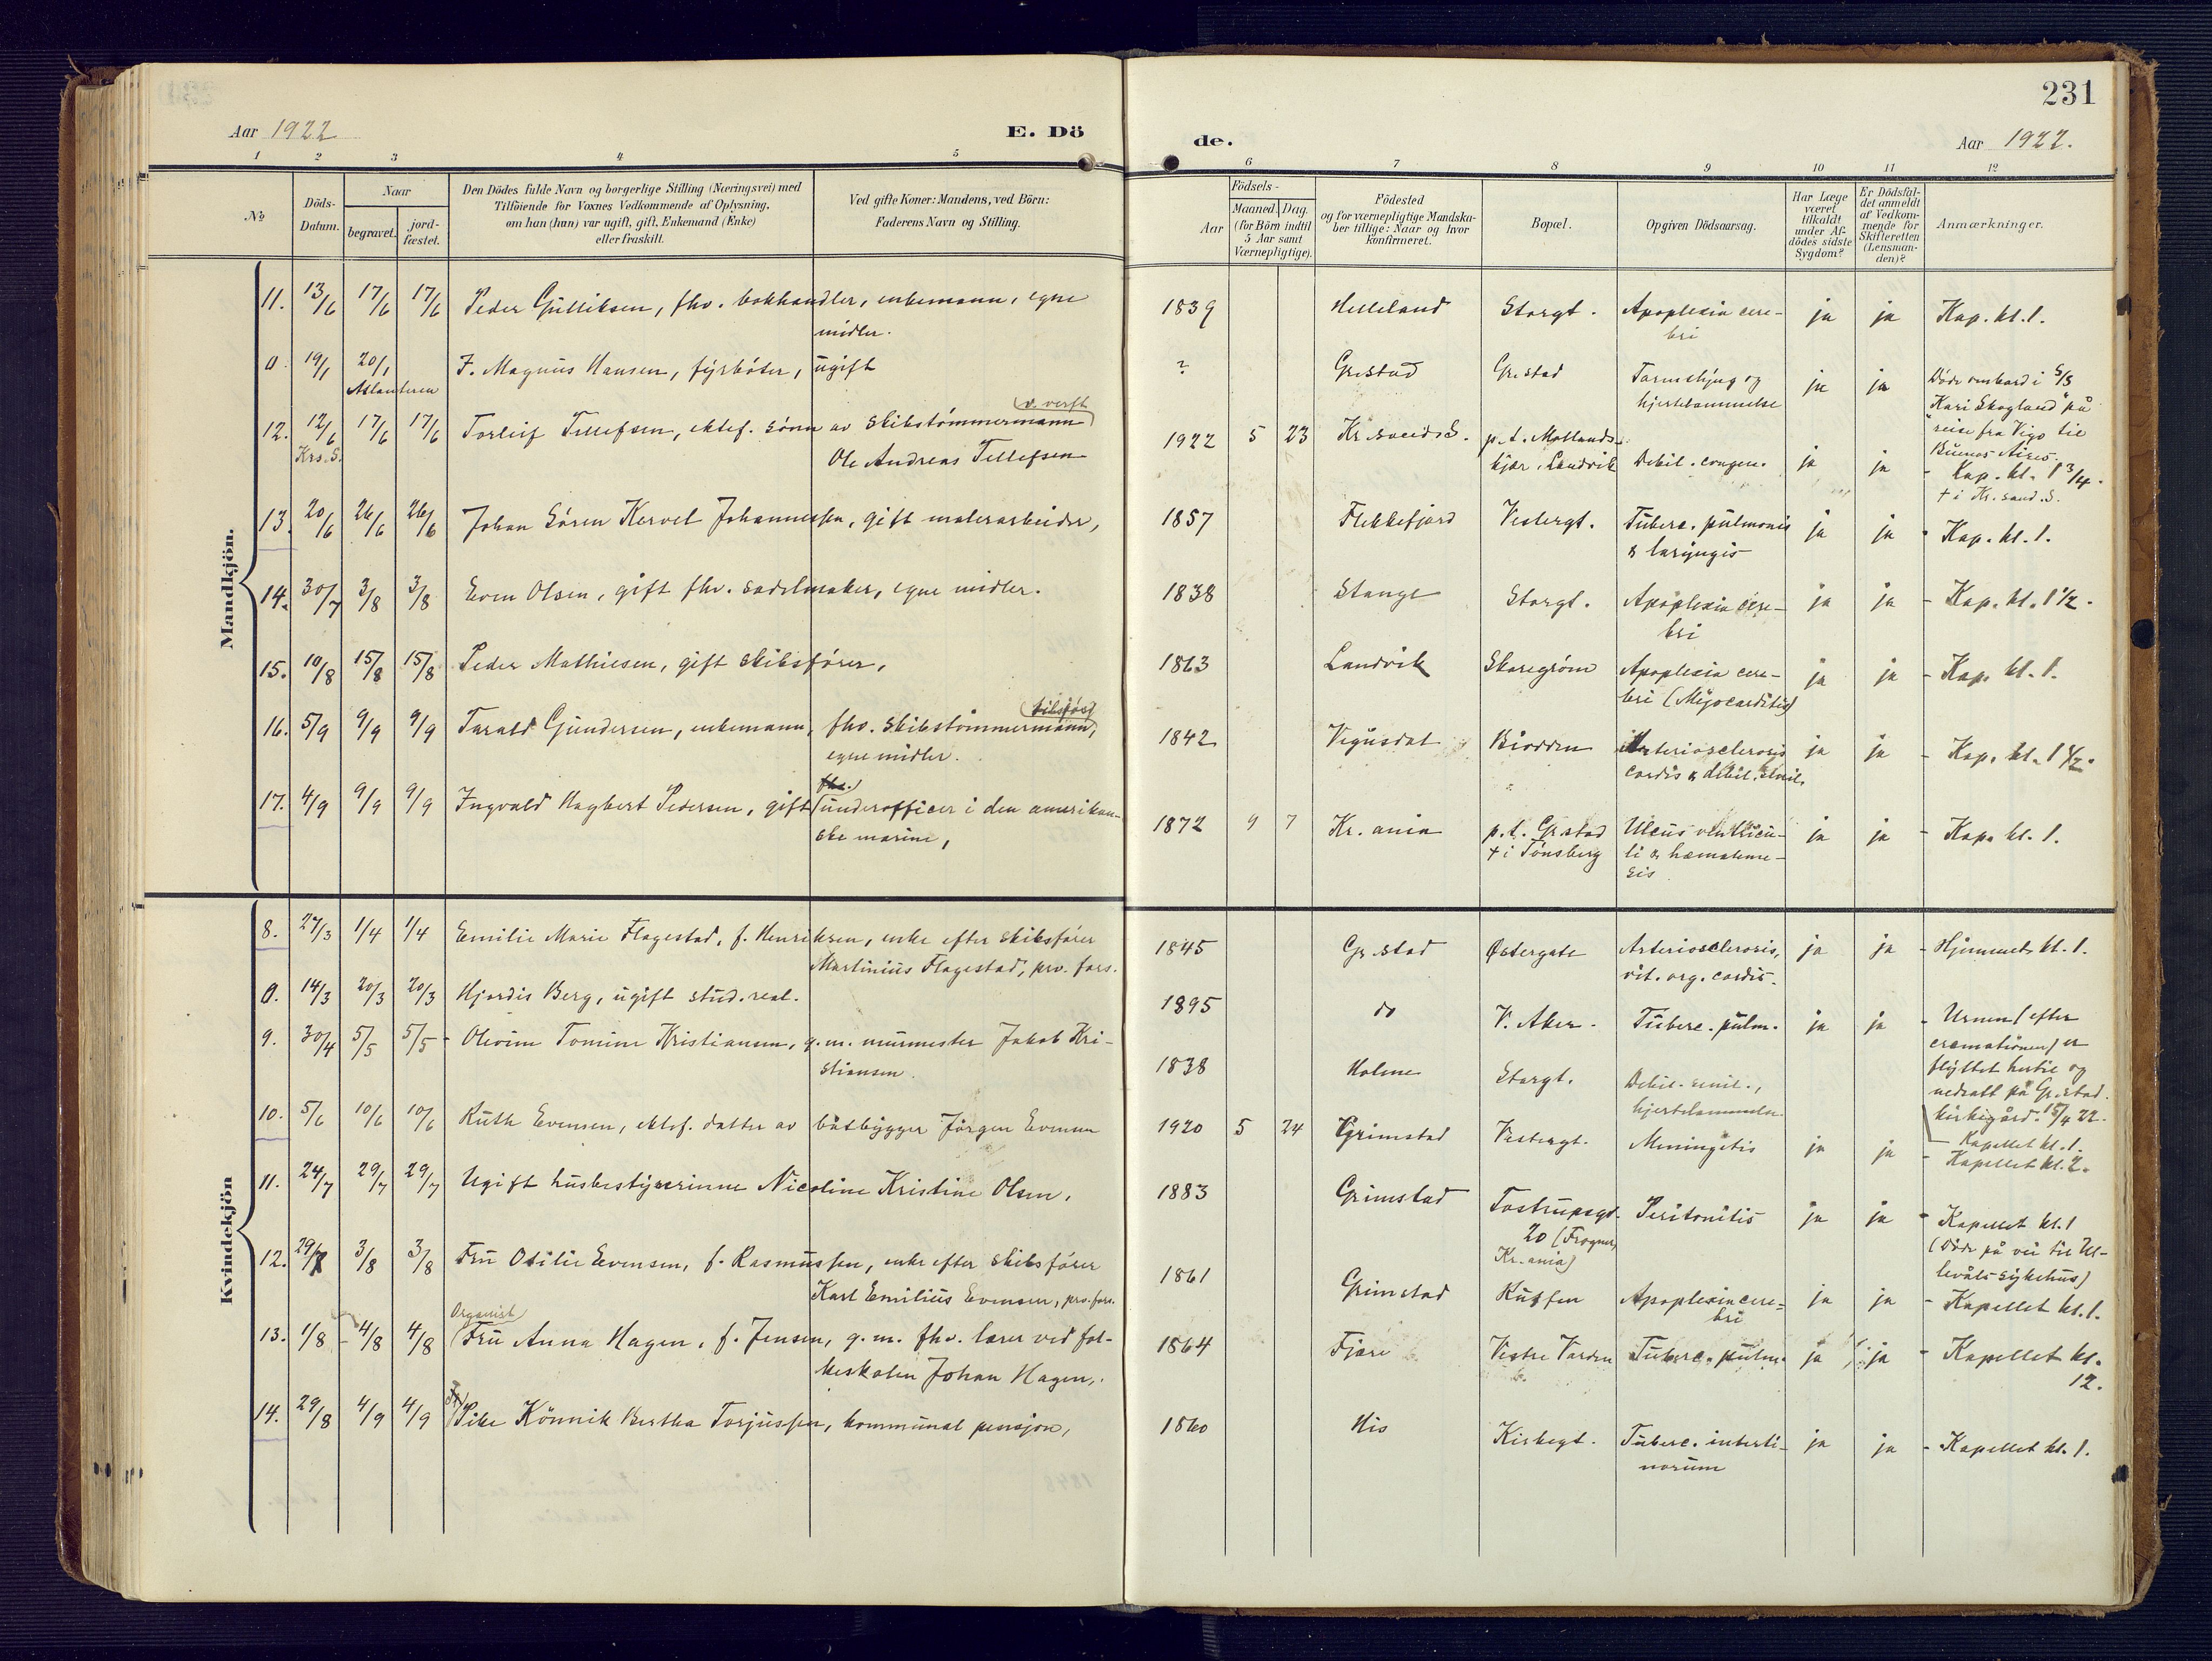 231
Aar 1922
E. Dö
de.
Aar 1922.
1 2 3 4 5 6 7 8 9 10 11 12
№
Döds-
Datum.
Naar
begravet.
jord-
fæstet.
Den Dödes fulde Navn og borgerlige Stilling (Næringsvei) med
Tilföiende for Voxnes Vedkommende af Oplysning,
om han (hun) var ugift, gift, Enkemand (Enke)
eller fraskilt.
Ved gifte Koner: Mandens, ved Börn:
Faderens Navn og Stilling.
Aar
Födsels-
Maaned. Dag.
(for Börn indtil
5 Aar samt
Værnepligtige).
Födested
og for værnepligtige Mandska-
ber tillige: Naar og hvor
konfirmeret.
Bopæl.
Opgiven Dödsaarsag.
Har Læge
været
tilkaldt
under Af-
dödes sidste
Sygdom?
Er Dödsfal-
det anmeldt
af Vedkom-
mende for
Skifteretten
(Lensman-
den)?
Anmærkninger.
Mandkjön.
11. 13/6 17/6 17/6 Peder Gulliksen, fhv. bokhandler, enkemann, egne
midler.
1839 Helleland Storgt. Apoplexia cere-
bri
ja ja Kap. kl. 1.
0 19/1 20/1 F. Magnus Hansen, fyrbøter, ugift
Atlanteren
? Gr.stad Gr.stad Tarmslyng og
hjertelammelse
ja ja Døde ombord i S/S
"Kari Skogland" på
reise fra Vigo til
Buenos Aires.
12. 12/6 17/6 17/6 Torleif Tellefsen, ektef. sønn av skibstømmermann
(v. verft)
Krs. S.
Ole Andreas Tellefsen
1922 5 23 Kr.sand S. p.t. Mollands-
kjær, Landvik Debil. congen. ja ja - Kap. kl. 1 3/4.
+ i Kr.sand. S.
13. 20/6 26/6 26/6 Johan Søren Kervel Johannessen, gift malerarbeider,
1857 Flekkefjord Vestergt. Tuberc. pulmonis
& laryngis
ja ja - Kap. kl. 1.
14. 30/7 3/8 3/8 Even Olsen, gift fhv. sadelmaker, egne midler.
1838 Stange Storgt. Apoplexia cere-
bri
ja ja - Kap. kl. 1 1/2.
15. 10/8 15/8 15/8 Peder Mathiesen, gift skibsfører,
1863 Landvik Skaregrøm Apoplexia cere-
bri (Myocarditis)
ja ja - Kap. kl. 1.
16. 5/9 9/9 9/9 Tarald Gundersen, enkemann, fhv. skibstømmermann,
egne midler.
1842 Vegusdal Biodden Arteriosclerosis
cordis & debil. senil.
ja ja - Kap. kl. 1 1/2.
17. 4/9 9/9 9/9 Ingvald Hagbert Pedersen, gift underofficer i den amerikan-
fhv.
ske marine,
1872 9 7 Kr.ania p.t. Gr.stad
+ i Tønsberg
Ulcus ventricu-
li & hæmateme-
sis
ja ja - Kap. kl. 1.
Kvindekjön
8. 27/3 1/4 1/4 Emilie Marie Flagestad, f. Henriksen, enke efter skibsfører
Martinius Flagestad, priv. fors.
1845 Gr.stad Østergate Arteriosclerosis,
vit. org. cordis.
ja ja - Hjemmet kl. 1.
0. 14/3 20/3 20/3 Hjørdis Berg, ugift stud. real.
1895 do V. Aker. Tuberc. pulm. ja ja - Urnen (efter
cremationen) er
flyttet hertil og
nedsatt på Gr.stad
kirkegård. 15/4 22.
9. 30/4 5/5 5/5 - Olevine Tomine Kristiansen, g.m. murmester Jakob Kri-
stiansen.
1838 Holme Storgt. Debil. senil.,
hjertelammelse.
- Kapellet kl. 1.
10. 5/6 10/6 10/6 Ruth Evensen, ektef. datter av båtbygger Jørgen Evensen
1920 5 24 Grimstad Vestergt. Meningitis ja ja - Kapellet kl. 2.
11. 24/7 29/7 29/7 Ugift husbestyrerinne Nicoline Kristine Olsen,
1883 Grimstad Tostrupsgt.
20 (Frogner,
Kr.ania)
Peritonitis ja ja - Kapellet kl. 1
(Døde på vei til Ul-
levåls sykehus)
12. 29/7 3/8 3/8 Fru Otilie Evensen, f. Rasmussen, enke efter skibsfører
Karl Emilius Evensen, priv. fors.
1861 Grimstad Apoplexia cere-
bri
ja ja - Kapellet kl. 1.
13. 1/8 - 4/8 4/8 Fru Anna Hagen, f. Jensen, g.m. fhv. lærer ved fol-
Organist
keskolen Johan Hagen,
1864 Fjære Vestre Varden Tuberc. pulm. ja ja - Kapellet kl.
12.
14. 29/8 4/9 4/9 Pike Kønnik Bertha Torjussen, kommunal pensjon,
1860 His Kirkegt. Tuberc. intesti-
norum
ja ja - Kapellet kl. 1.